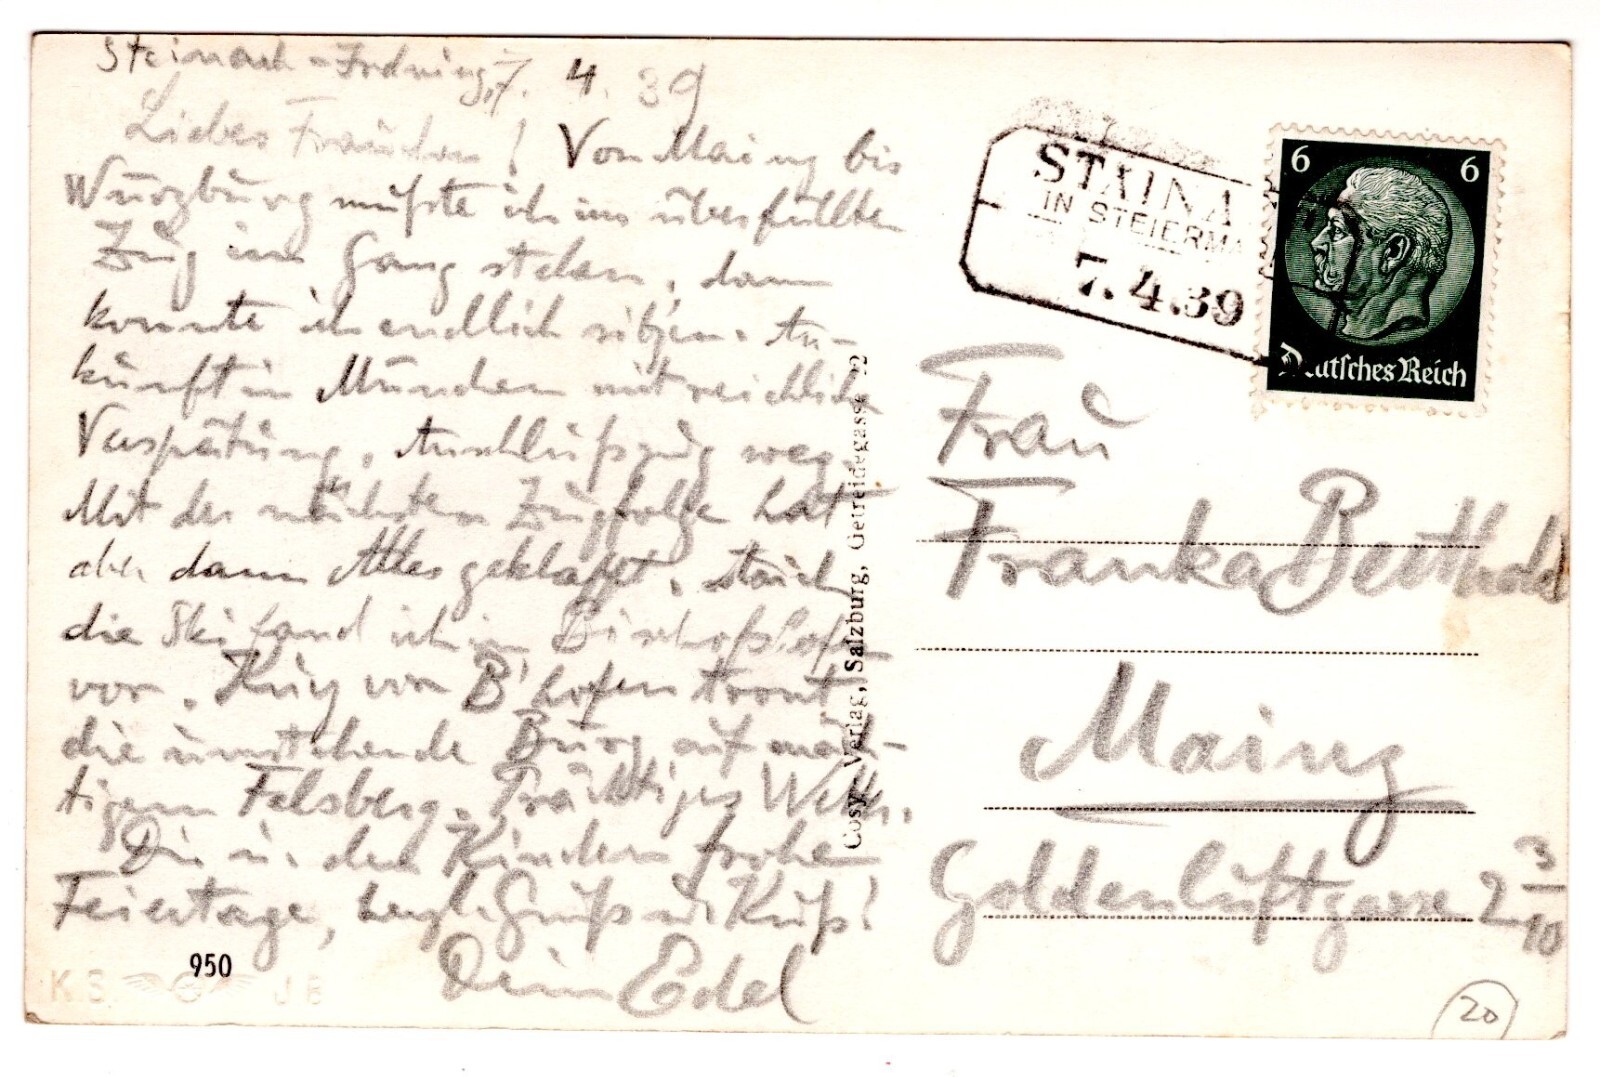 Steinach-Irdning, 7. 4. 39
Liebes Frauchen! Von Mainz bis
Würzburg mußte ich im überfüllten
Zug im Gang stehen, dann
konnte ich endlich sitzen. An-
kunft in München mit reichlicher
Verspätung, Anschlußzug weg.
Mit der nächsten Zugfolge hat
aber dann Alles geklappt, auch
die Ski fand ich in Bischofshofen
vor. Kurz von B'hofen tront
die umstehende Burg auf mäch-
tigem Felsberg. Prächtiges Wetter.
Dir u. den Kindern frohe
Feiertage, herzl. Gruß u. Kuß!
Dein Edel
950
K.S. J B
Cosy-Verlag, Salzburg, Getreidegasse 22
STAINA
IN STEIERMA
7. 4. 39
6 6
Deutsches Reich
Frau
Franka Berthold
Mainz
Goldenluftgasse 2 3/10
20